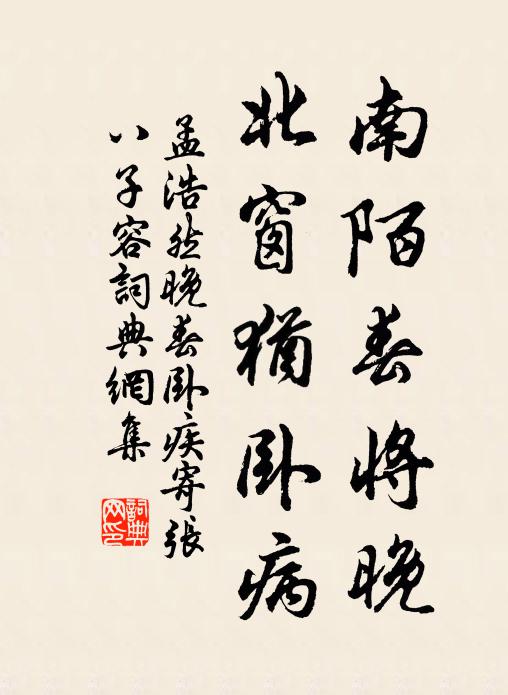 南陌春将晚
北窗猶卧病
孟浩然晚春卧疾寄張
八子容詞典網集
詞典网印